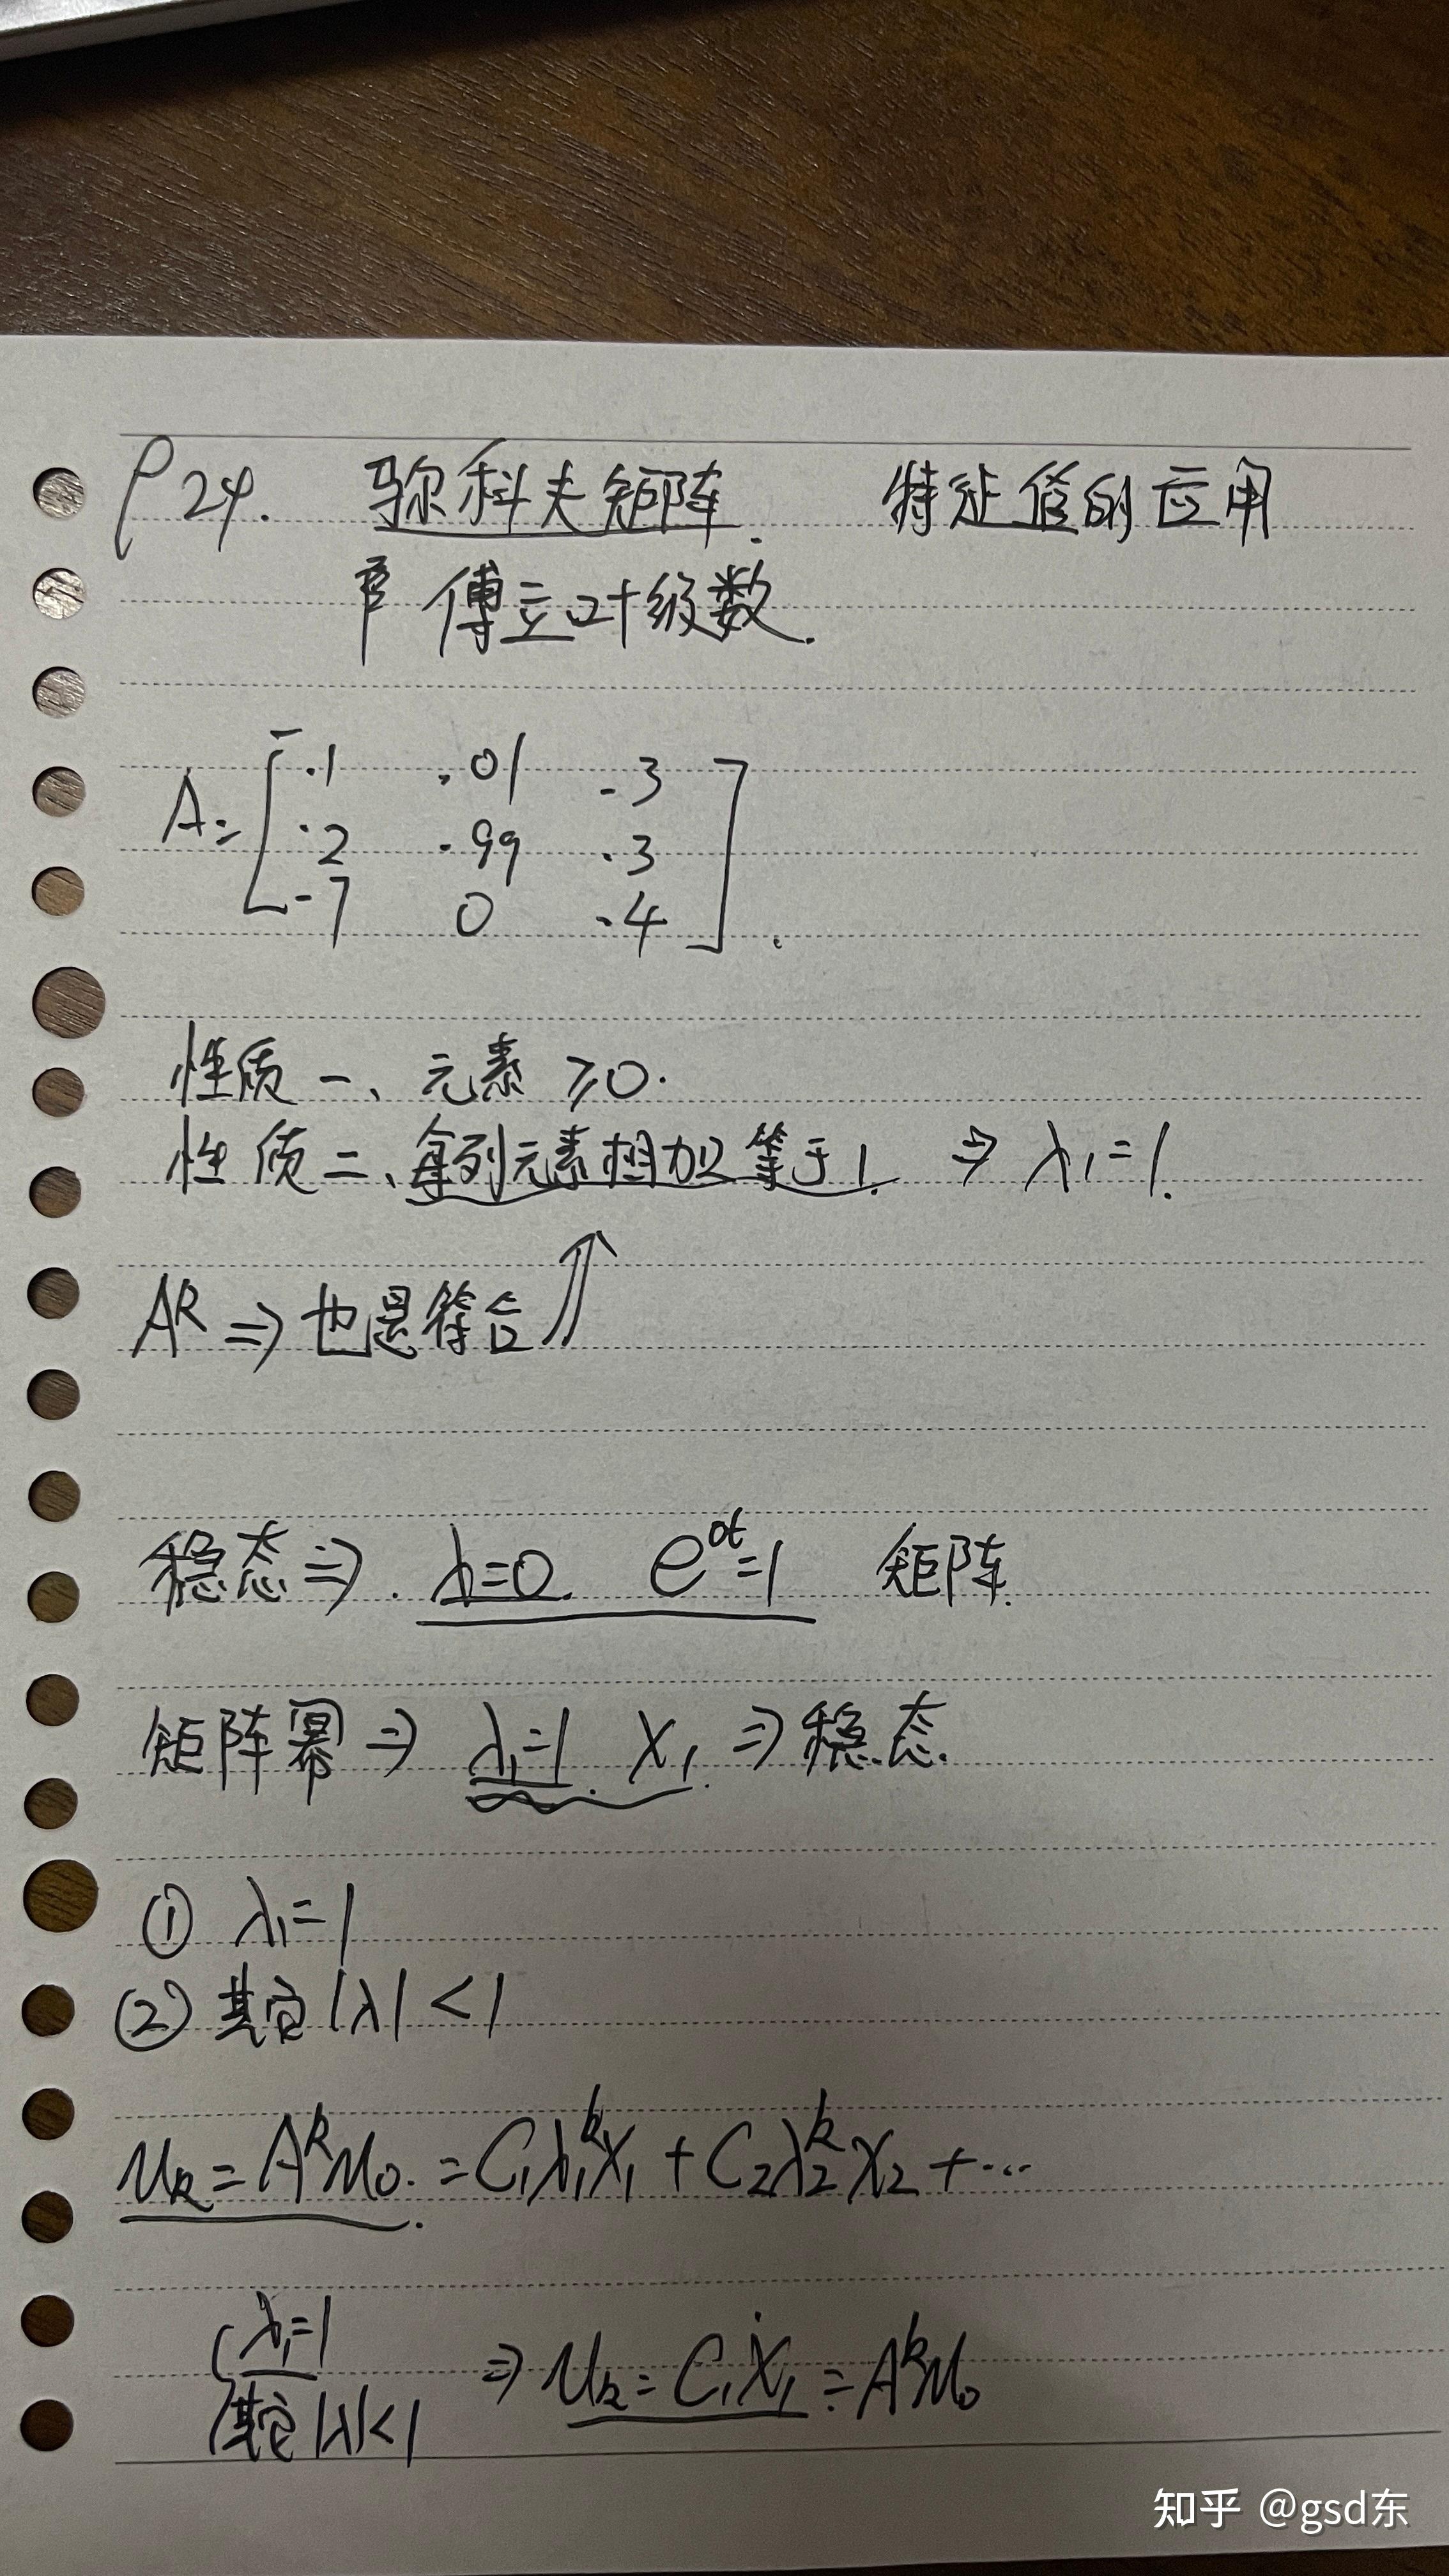 P24. 马尔科夫矩阵. 特征值的应用
傅立叶级数.
A= [ .1 .01 .3
.2 .99 .3
.7 0 .4 ] .
性质一、元素 ≥0.
性质二、每列元素相加等于1. ⇒ λ₁=1.
Aᴷ ⇒ 也是符合 ⇑
稳态 ⇒ . λ=0. e⁰ᵗ=1 矩阵.
矩阵幂 ⇒ λ₁=1 . X₁. ⇒ 稳态.
① λ₁=1
② 其它 |λ| <1
uₖ = Aᵏu₀. = C₁λ₁ᵏX₁ + C₂λ₂ᵏX₂ + ...
{ λ₁=1
其它 |λ|<1 ⇒ uₖ = C₁X₁ = Aᵏu₀
知乎 @gsd东